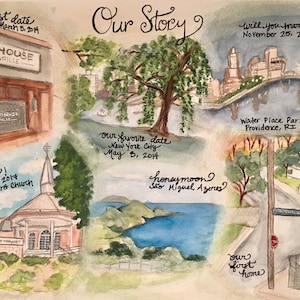 Our Story
first date
March 5, 2014
HOUSE
GRILLE
will you marry
November 25, 2
our favorite date
New York City
May 5, 2014
Water Place Par
Providence, R.I
2014
Church
honeymoon
São Miguel Azores
our
first
home